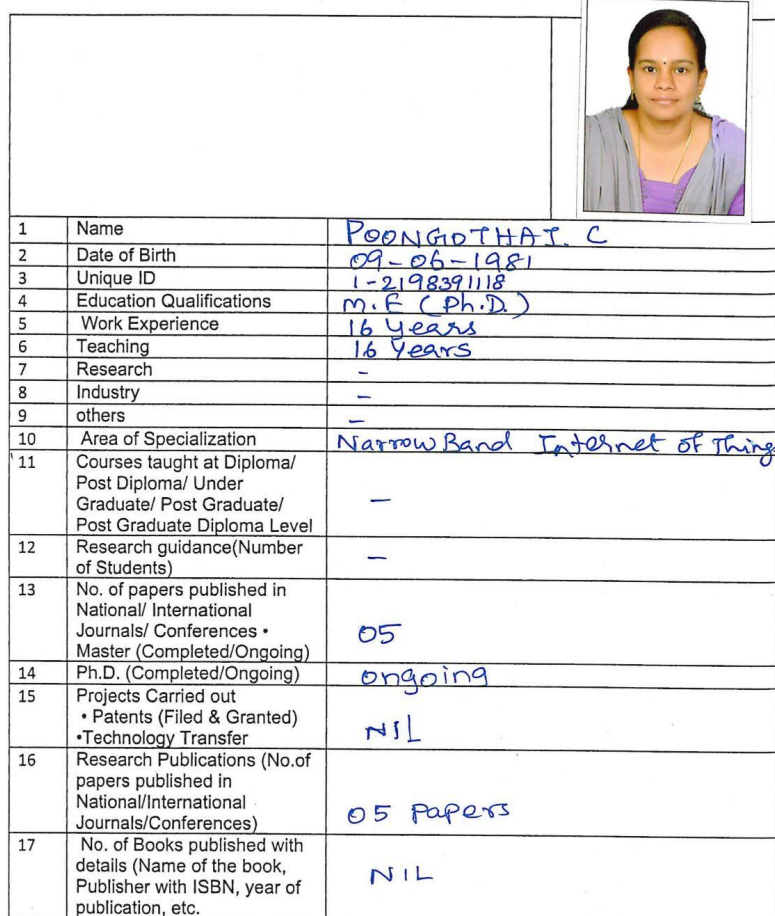 1 Name POONGOTHAI. C
2 Date of Birth 09-06-1981
3 Unique ID 1-2198391118
4 Education Qualifications M.E (Ph.D.)
5 Work Experience 16 Years
6 Teaching 16 Years
7 Research -
8 Industry -
9 others -
10 Area of Specialization NarrowBand Internet of Things
11 Courses taught at Diploma/
Post Diploma/ Under
Graduate/ Post Graduate/
Post Graduate Diploma Level -
12 Research guidance(Number
of Students) -
13 No. of papers published in
National/ International
Journals/ Conferences •
Master (Completed/Ongoing) 05
14 Ph.D. (Completed/Ongoing) ongoing
15 Projects Carried out
• Patents (Filed & Granted)
•Technology Transfer NIL
16 Research Publications (No.of
papers published in
National/International
Journals/Conferences) 05 Papers
17 No. of Books published with
details (Name of the book,
Publisher with ISBN, year of
publication, etc. NIL